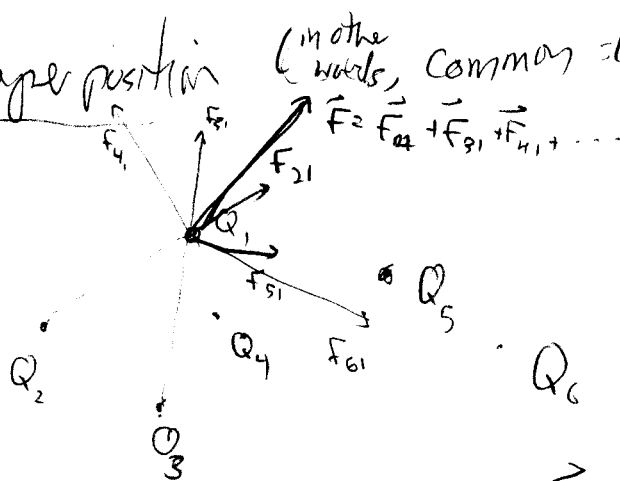 superposition (in other words, common =
F₄₁ F₃₁ F⃗ = F⃗₂₁ + F⃗₃₁ + F⃗₄₁ + ....
F₂₁
Q₁
F₅₁
Q₅
Q₄ F₆₁
Q₂ Q₆
Q₃